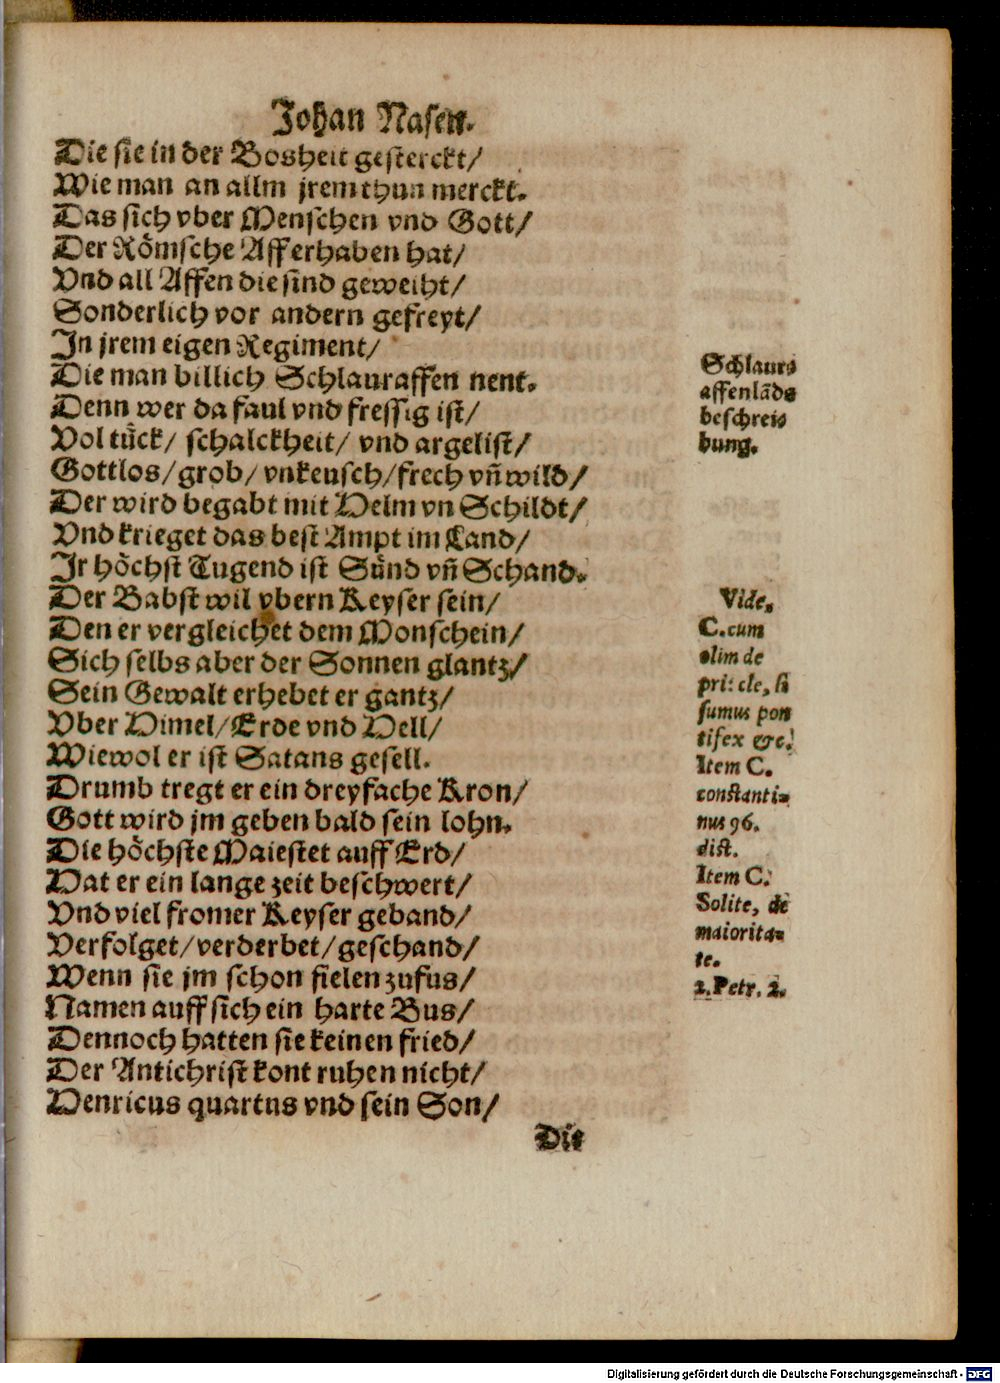 Johan Nasen.
Die sie in der Bosheit gesterckt/
Wie man an allm jrem thun merckt.
Das sich vber Menschen vnd Gott/
Der Römsche Aff erhaben hat/
Vnd all Affen die sind geweiht/
Sonderlich vor andern gefreyt/
In jrem eigen Regiment/
Die man billich Schlauraffen nent.
Denn wer da faul vnd fressig ist/
Vol tück/ schalckheit/ vnd argelist/
Gottlos/ grob/ vnkeusch/ frech vñ wild/
Der wird begabt mit Helm vn Schildt/
Vnd krieget das best Ampt im Land/
Ir höchst Tugend ist Sünd vñ Schand.
Der Babst wil vbern Keyser sein/
Den er vergleichet dem Monschein/
Sich selbs aber der Sonnen glantz/
Sein Gewalt erhebet er gantz/
Vber Himel/ Erde vnd Hell/
Wiewol er ist Satans gesell.
Drumb tregt er ein dreyfache Kron/
Gott wird jm geben bald sein lohn.
Die höchste Maiestet auff Erd/
Hat er ein lange zeit beschwert/
Vnd viel fromer Keyser geband/
Verfolget/ verderbet/ geschand/
Wenn sie jm schon fielen zufus/
Namen auff sich ein harte Bus/
Dennoch hatten sie keinen fried/
Der Antichrist kont ruhen nicht/
Henricus quartus vnd sein Son/
Die
Schlaur⸗
affenlãds
beschrei⸗
bung.
Vide,
C. cum
olim de
pri: cle, si
sumus pon
tifex &c.
Item C.
constanti⸗
nus 96.
dist.
Item C.
Solite, de
maiorita⸗
te.
2. Petr. 2.
Digitalisierung gefördert durch die Deutsche Forschungsgemeinschaft - DFG